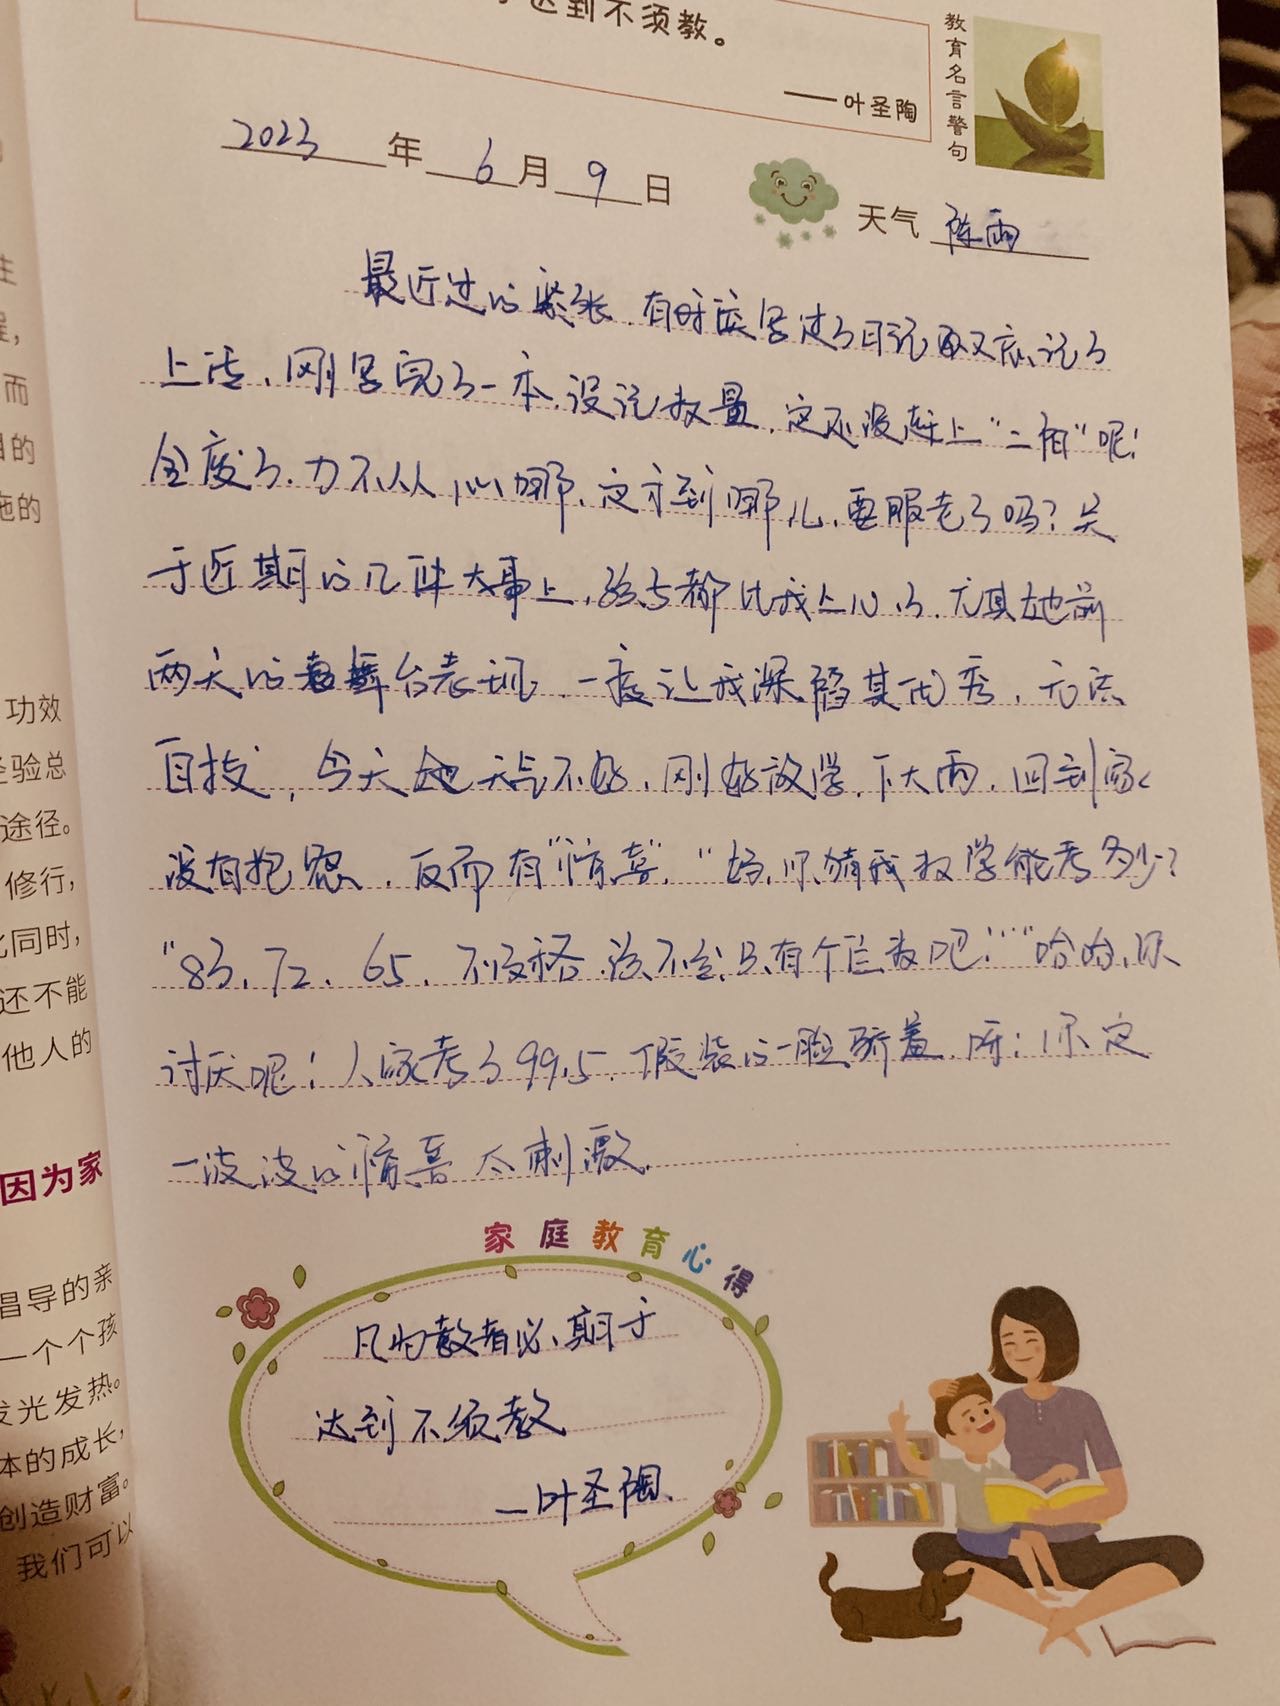 达到不须教。
——叶圣陶
教育名言警句
2023年6月9日
天气 阵雨
最近过的紧张,有时候写过了日记却又忘记了
上传、刚写完了一本,没记数量,这还没赶上"二阳"呢!
全废了、力不从心哪,这才到哪儿,要服老了吗?关
于近期的几件大事上,孩子都比我上心了,尤其她前
两天的舞台表现,一度让我深陷其优秀,无法
自拔,今天天气不好,刚好放学,下大雨,回到家
没有抱怨,反而有"惊喜","妈,你猜我数学能考多少?
"83、72、65、不及格,该不会只有个位数吧!""哈哈,你
讨厌呢!人家考了99.5,假装的一脸娇羞,呀!你这
一波波的惊喜太刺激.
家庭教育心得
凡为教者必期于
达到不须教
—叶圣陶
而
功效
经验总
途径。
修行,
同时,
还不能
他人的
因为家
倡导的亲
一个个孩
发光发热。
体的成长,
创造财富。
我们可以